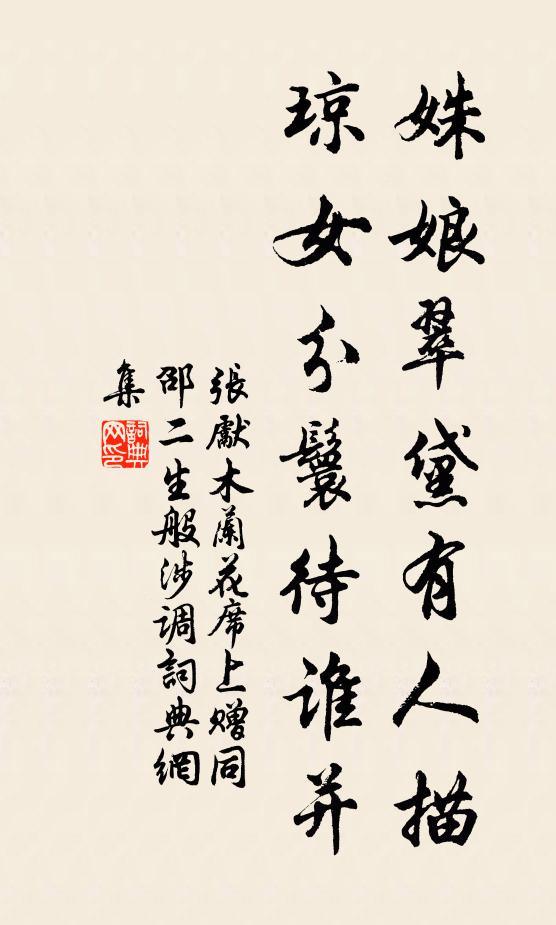 姝娘翠黛有人描
琼女分鬟待谁并
張獻木蘭花席上赠同
邵二生般涉调詞典網
集
詞典
网印